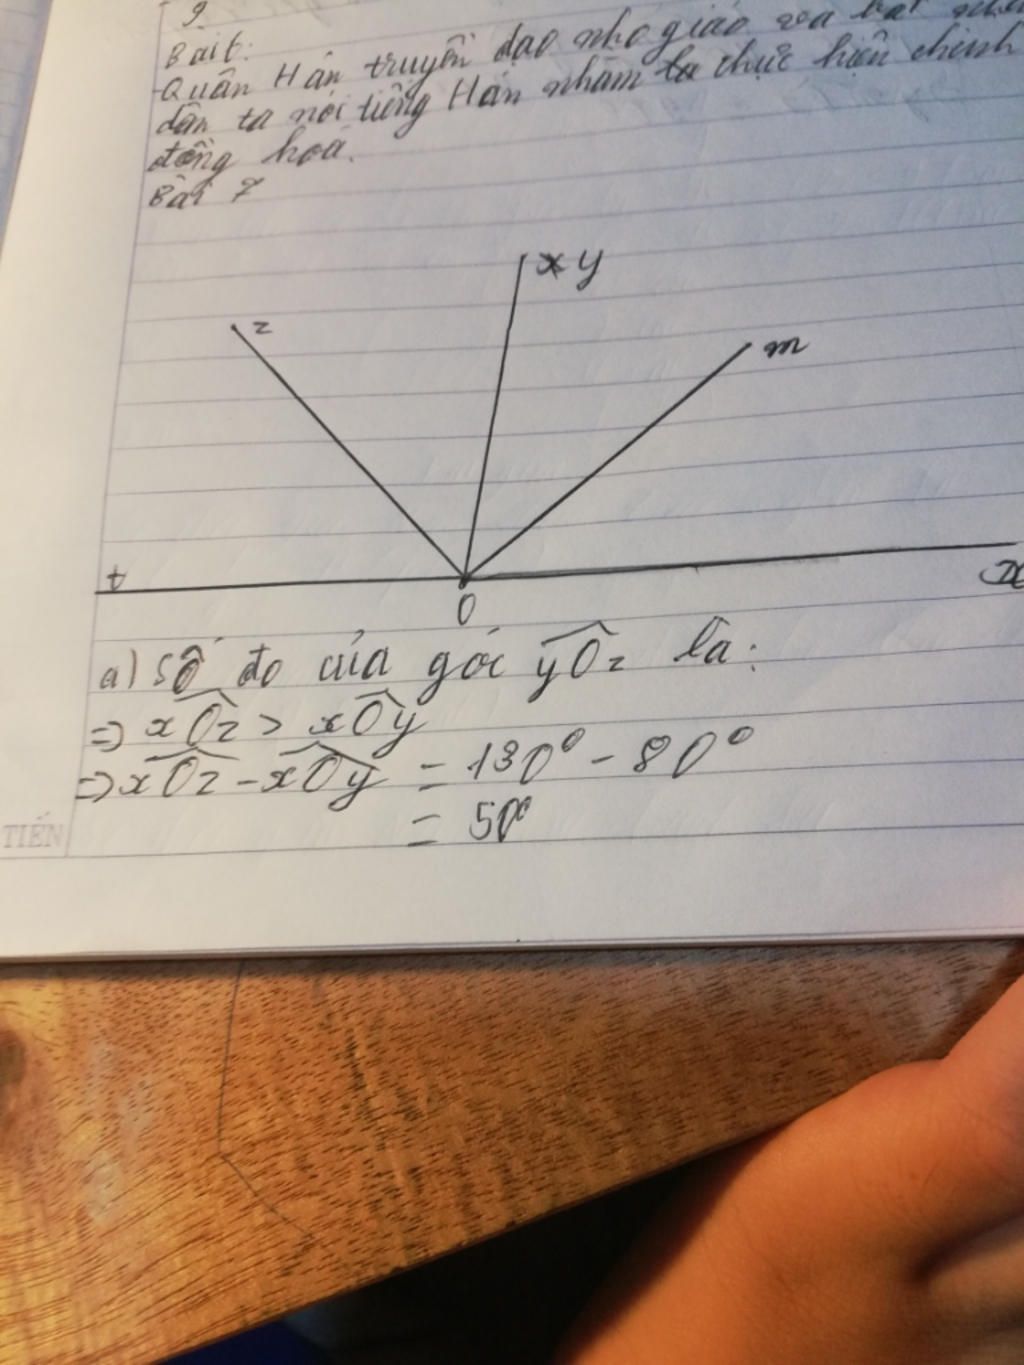 9
Bài 6:
- Quân Hán truyền đạo nho giáo và bắt nhân
dân ta nói tiếng Hán nhằm ta thực hiện chính
đồng hoá.
Bài 7
z
x y
m
t
O
x
a) Số đo của góc yOz là:
=> xOz > xOy
=> xOz - xOy = 130° - 80°
= 50°
TIẾN